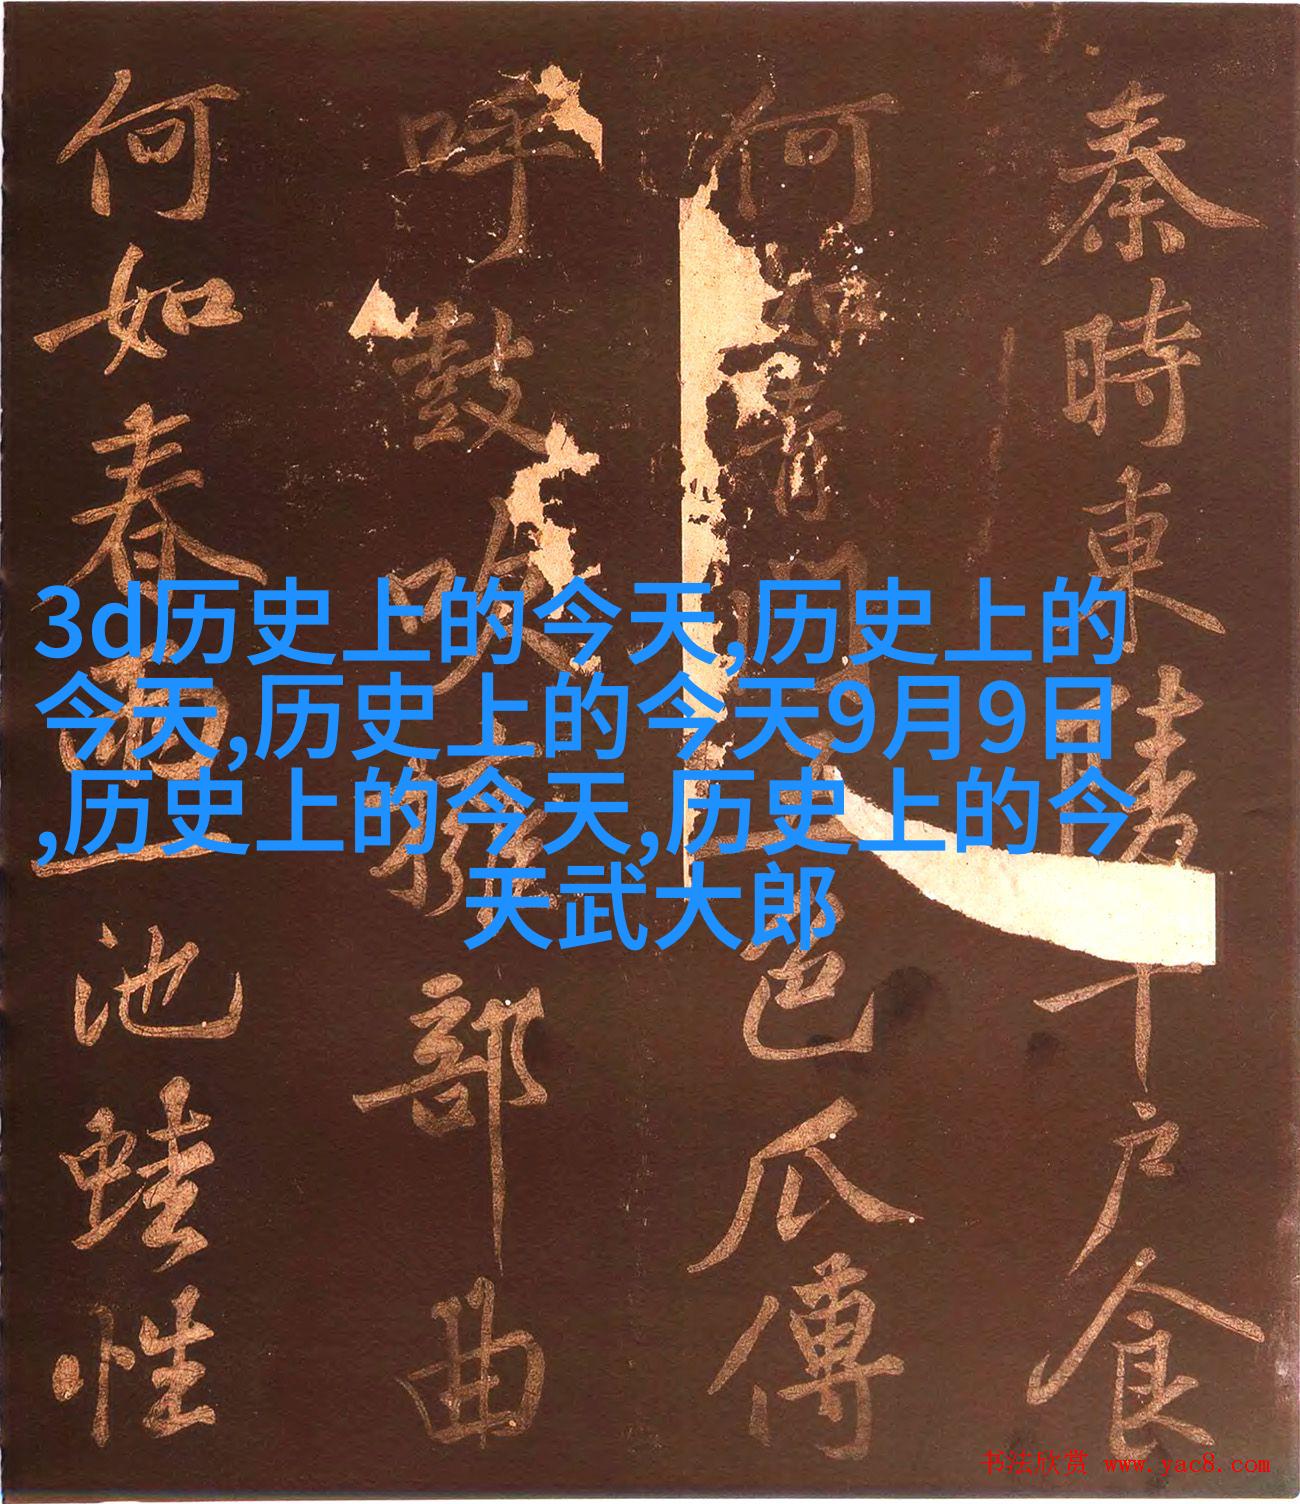 秦時東陵千戶食
何如青門五色瓜傳
呼鼓吹擁部曲
何如春雨一池蛙性
3d历史上的今天,历史上的
今天,历史上的今天9月9日
,历史上的今天,历史上的今
天武大郎
书法欣赏 www.yac8.com